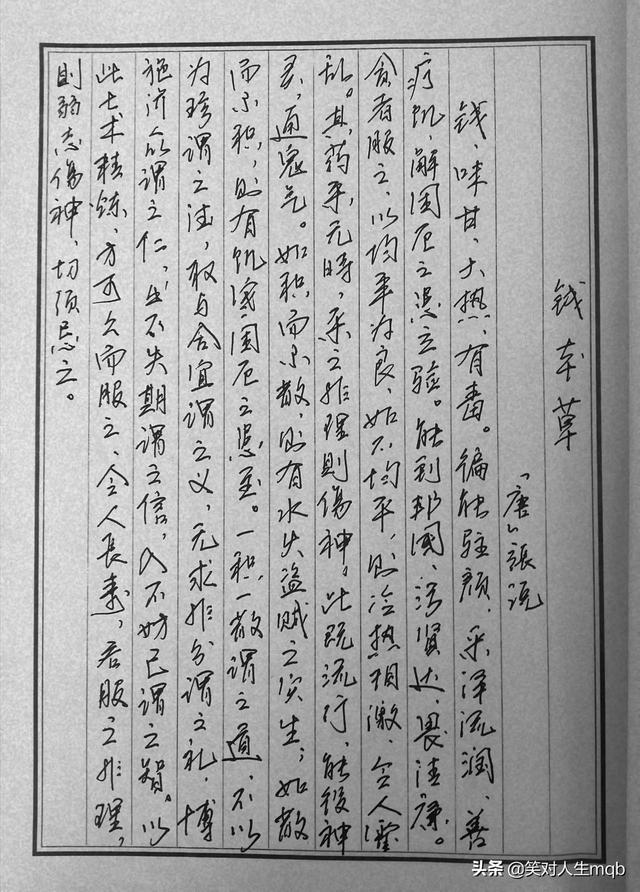 钱本草
「唐」張说
钱、味甘、大热、有毒。偏能驻颜、采泽流润、善
疗饥，解困厄之患立验。能利邦國、污贤达、畏清廉。
贪者服之、以均平为良，如不均平，则冷热相激、令人霍
乱。其药采无時，采之非理則傷神。此既流行，能役神
灵，通鬼气。如积而不散，则有水火盗贼之灾生；如散
而不积，则有饥寒困厄之患至。一积一散谓之道，不以
为珍谓之德，取与合宜谓之义，无求非分谓之礼，博
施济众谓之仁，出不失期謂之信，入不妨己谓之智。以
此七术精炼，方可久而服之、令人長寿，若服之非理，
則弱志傷神，切须忌之。
头条 @笑对人生mqb